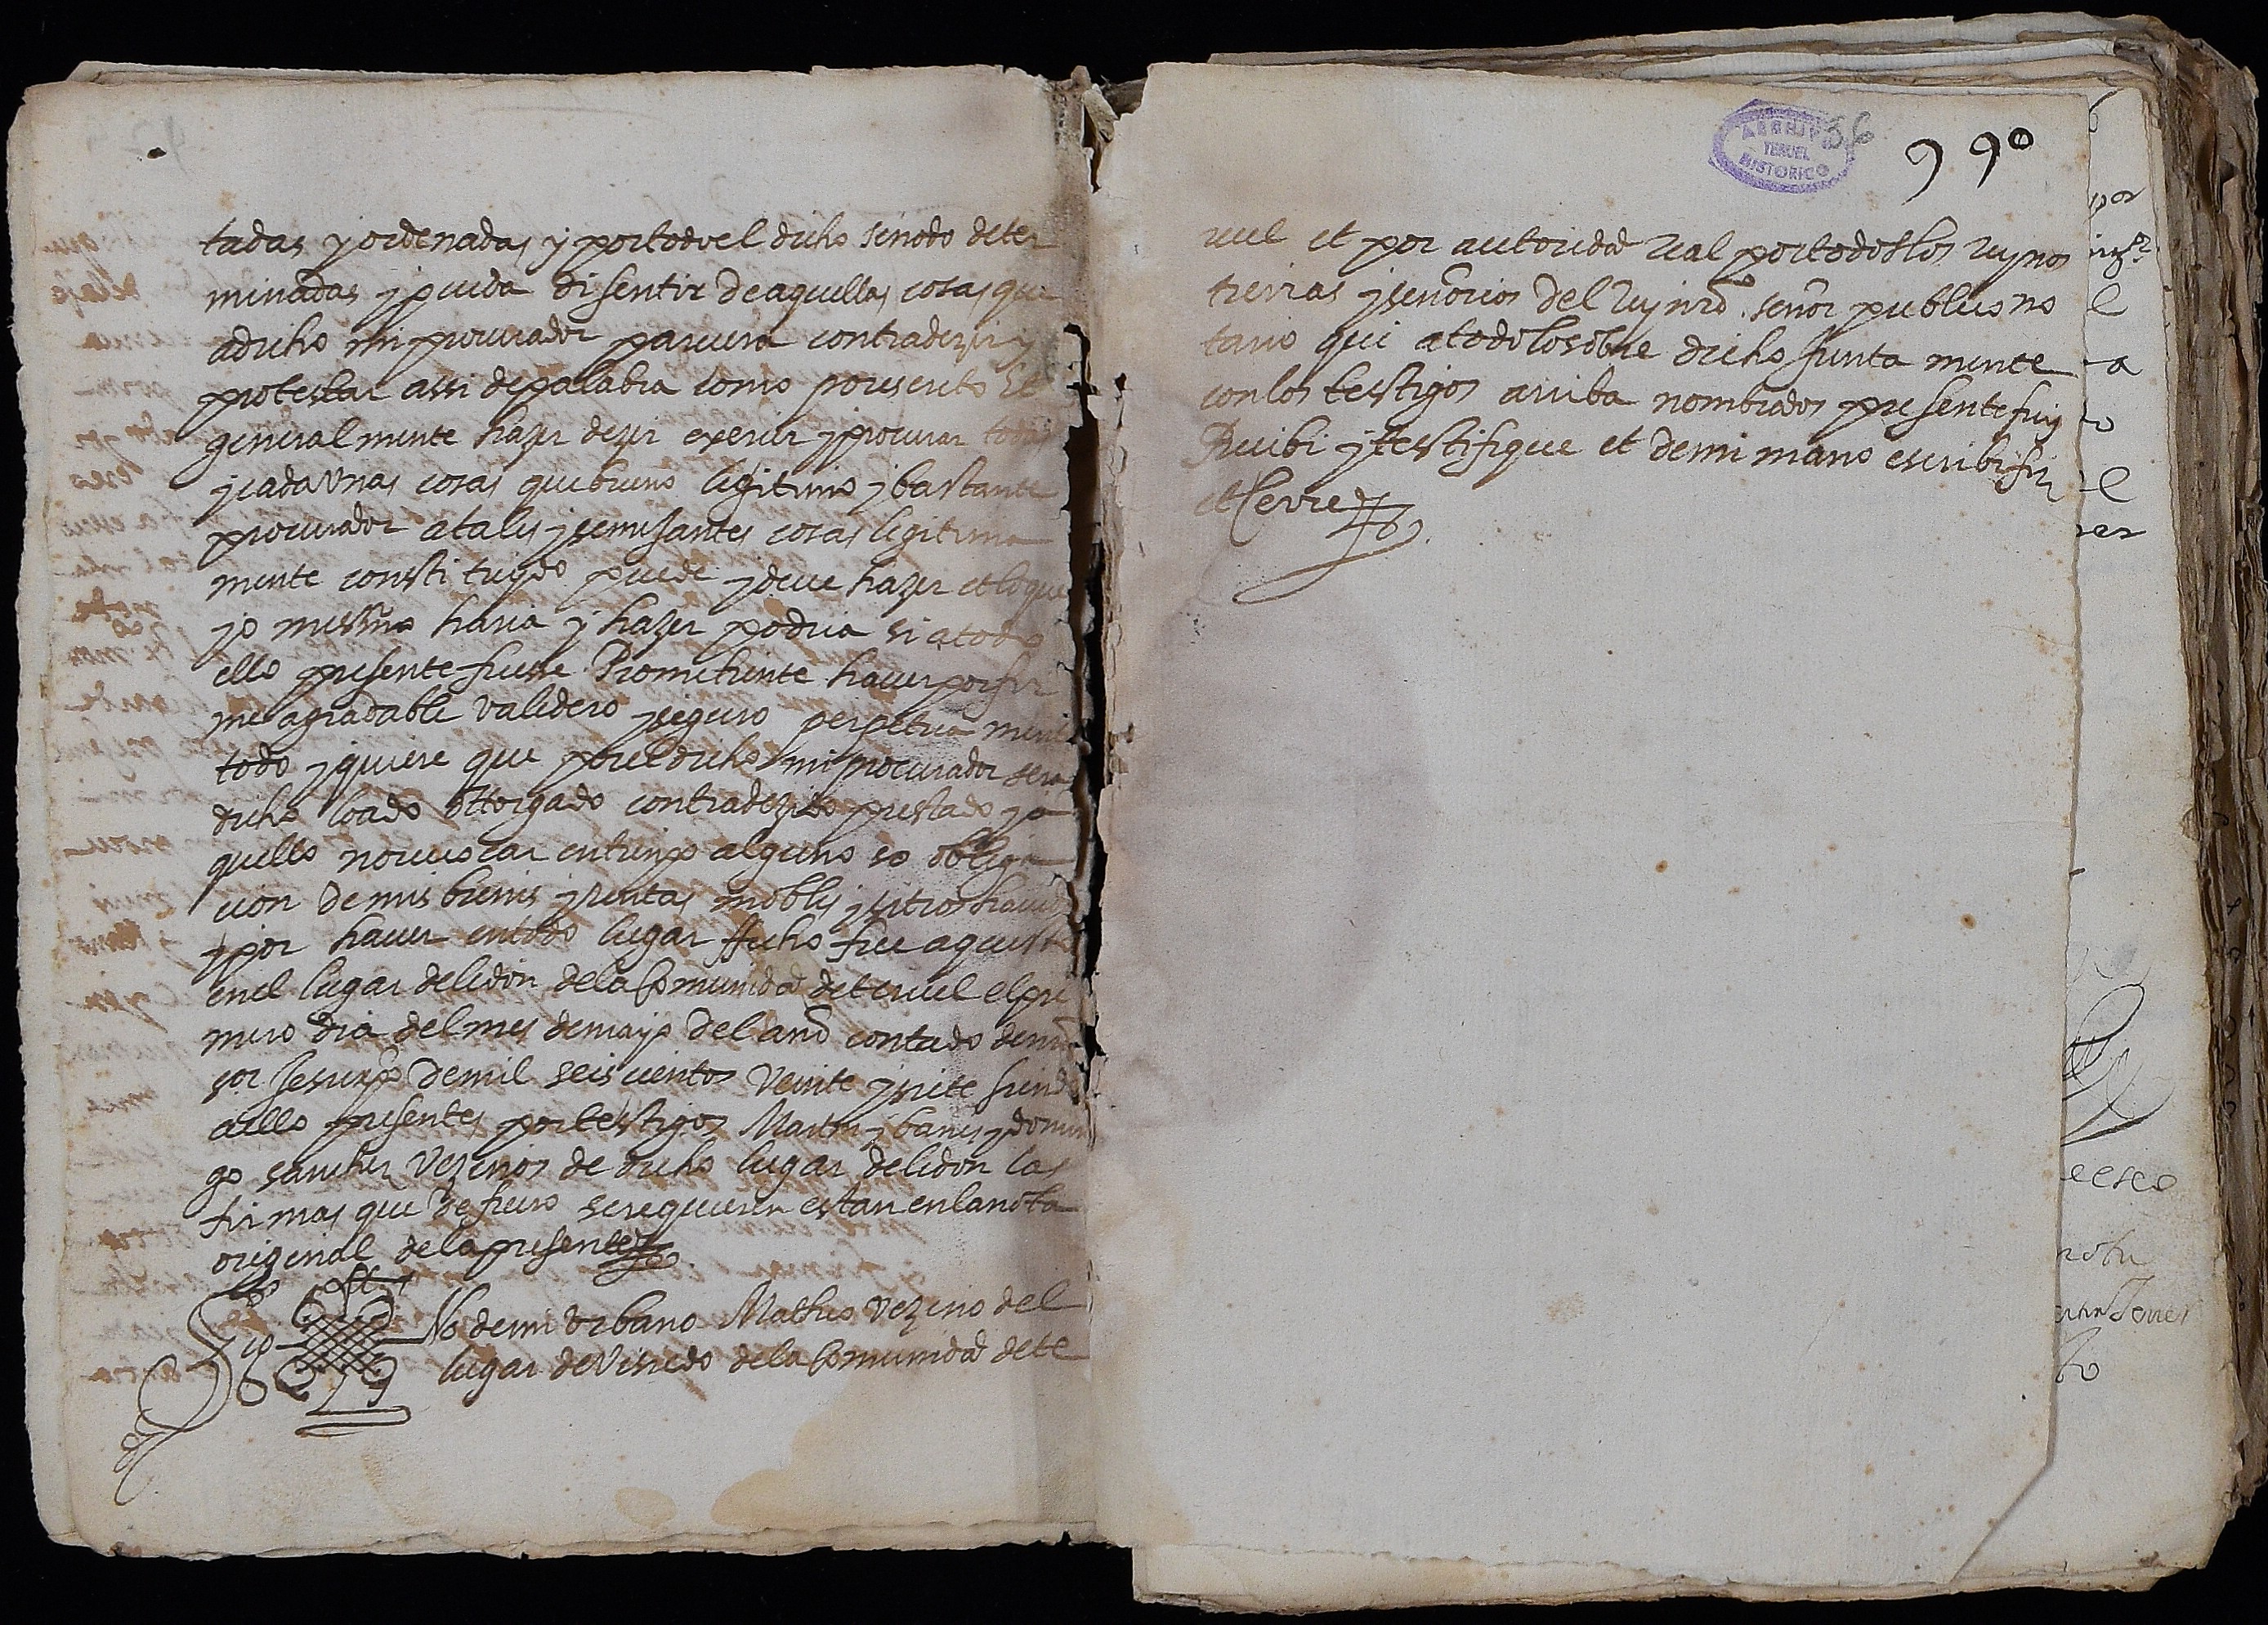 tadas y ordenadas y por todo el dicho sinodo deter
minadas y pueda disentir de aquellas cosas que
a dicho mi procurador parecera contradezir y
protestar assi de palabra como por escrito Et
generalmente hazer dezir exercir y procurar todas
y cada unas cosas que bueno legitimo y bastante
procurador a tales y semejantes cosas legitima
mente constituydo puede y deve hazer et lo que
yo messmo haria y hazer podria si a todo
ello presente fuesse Promitiente haver por fir
me agradable validero y seguro perpetua mente
todo y quiere que por el dicho mi procurador sera
dicho loado ottorgado contradezido prestado y a
quello no revocar en tienpo alguno so obliga
cion de mis bienes y rentas mobles y sitios havidos
y por haver en todo lugar ffecho fue aquesto
en el lugar de lidon de la Comunidad de teruel el pri
mero dia del mes de mayo del año contado de nro
sor Jesuxpo de mil seiscientos veinte y siete siendo
a ello presentes por testigos Martin ybanes y domin
go sanchez vezinos de dicho lugar de lidon las
firmas que de fuero se requieren estan en la nota
original de la presente
Sig No de mi Urbano Matheo vezino del
lugar de Visiedo de la Comunidad de te
ARCHIVO
TERUEL
HISTORICO
86
99º
ruel et por autoridad real por todos los reynos
tierras y señorios del Rey nro señor publico no
tario qui a todo lo sobre dicho junta mente
con los testigos arriba nombrados presente fuy
Recibi y testifique et de mi mano escribi fir
et Cerre